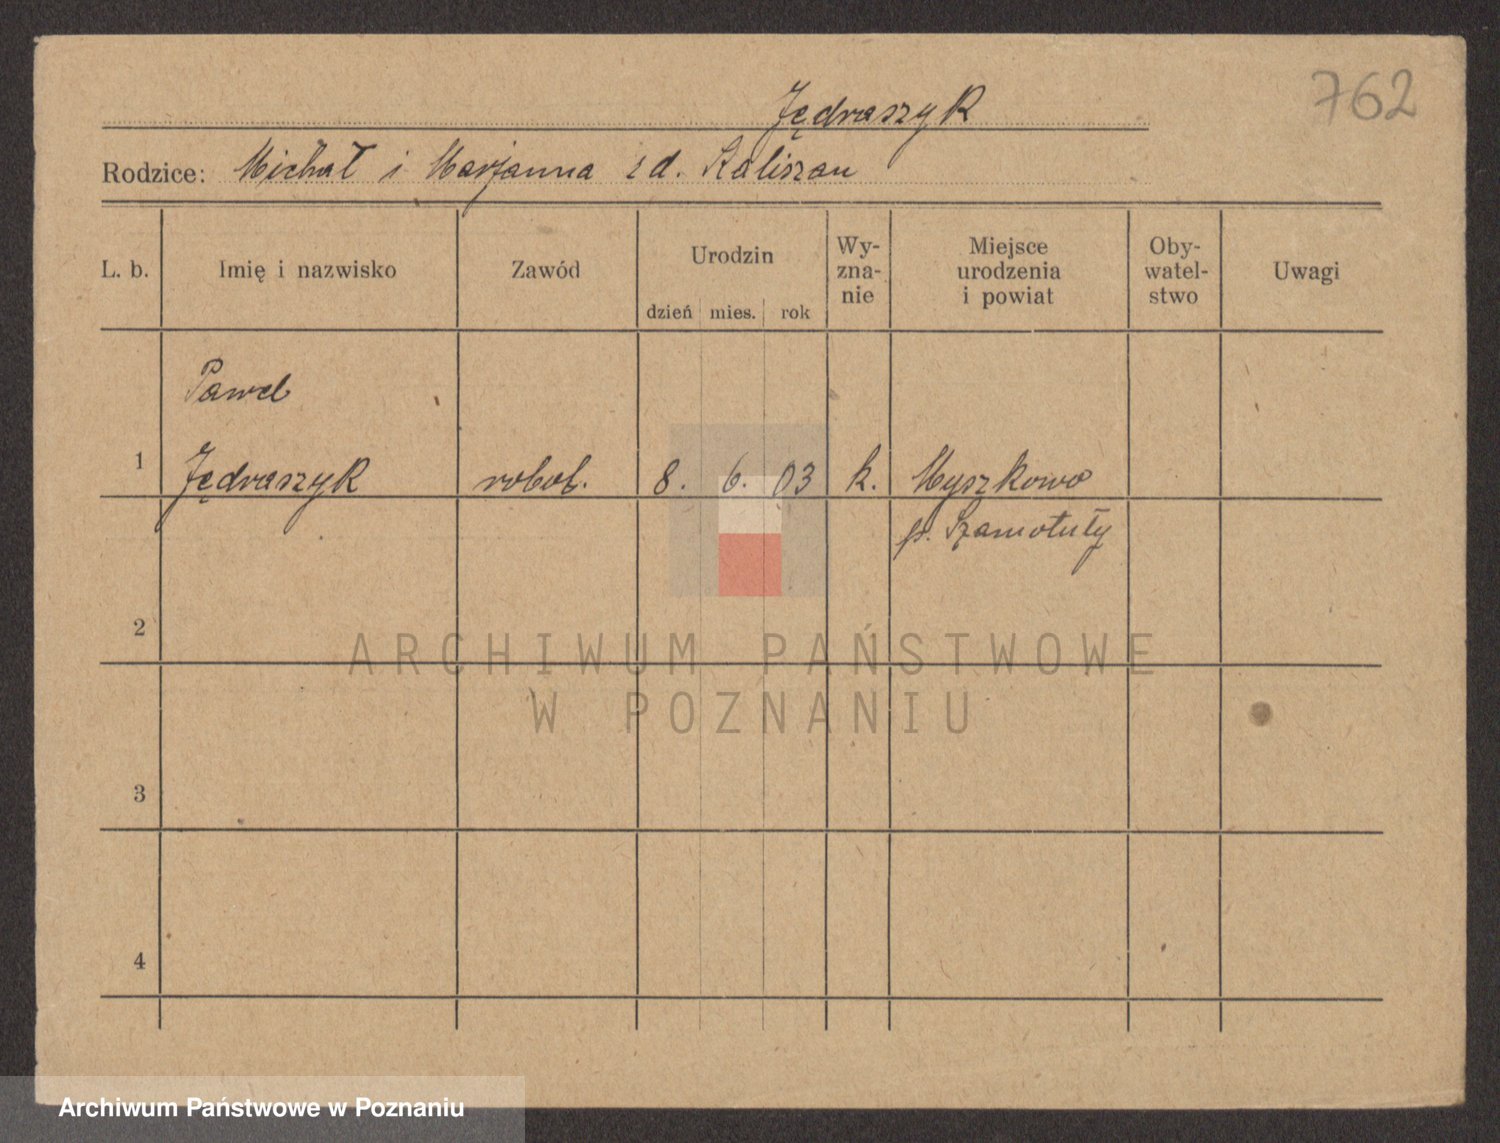 762
Jędraszyk
Rodzice: Michał i Marjanna z d. Kaliszan
L. b.
Imię i nazwisko
Zawód
Urodzin
dzień mies. rok
Wy-
zna-
nie
Miejsce
urodzenia
i powiat
Oby-
watel-
stwo
Uwagi
Paweł
1 Jędraszyk robot. 8. 6. 03 k. Myszkowo
p. Szamotuły
2
ARCHIWUM PAŃSTWOWE
W POZNANIU
3
4
Archiwum Państwowe w Poznaniu